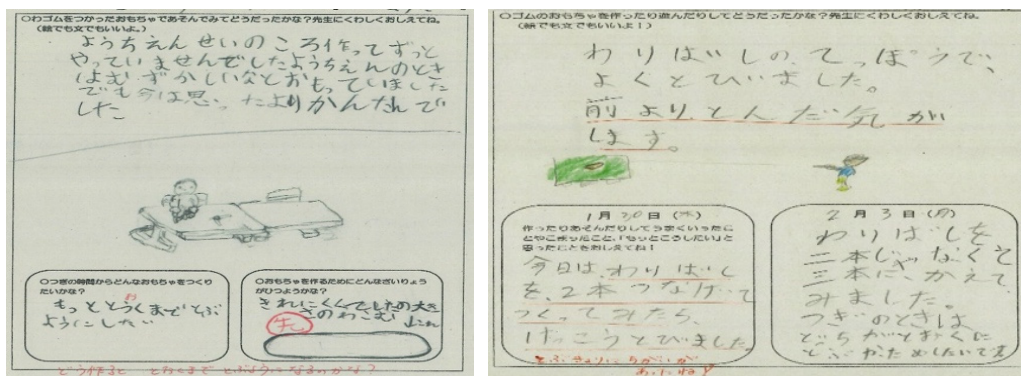 ○わゴムをつかったおもちゃであそんでみてどうだったかな?先生にくわしくおしえてね。
(絵でも文でもいいよ。)
ようちえんせいのころ作ってずっと
やっていませんでしたようちえんのとき
はむずかしいなとおもっていました
でも今は思ったよりかんたんで
した
○つぎの時間からどんなおもちゃをつくり
たいかな?
もっととうくまでとぶ
お
ようにしたい
○おもちゃを作るためにどんなざいりょう
がひつようかな?
きれいに
大き
さのわごむ
先
どう作ると とおくまで とぶようになるのかな?
○ゴムのおもちゃを作ったり遊んだりしてどうだったかな?先生にくわしくおしえてね。
(絵でも文でもいいよ!)
わりばしのてっぽうで、
よくとびました。
前よりとんだ気が
します。
1月30日(木)
作ったりあそんだりしてうまくいったこ
とやこまったこと、「もっとこうしたい」と
思ったことをおしえてね!
今日は、わりばし
を、2本つなげて
つくってみたら、
けっこうとびました。
とぶきょりに ちがいが
あったね!
2月3日(月)
わりばしを
二本じゃなくて
三本に、かえて
みました。
つぎのときは
どちらがとおくに
とぶかためしたいです